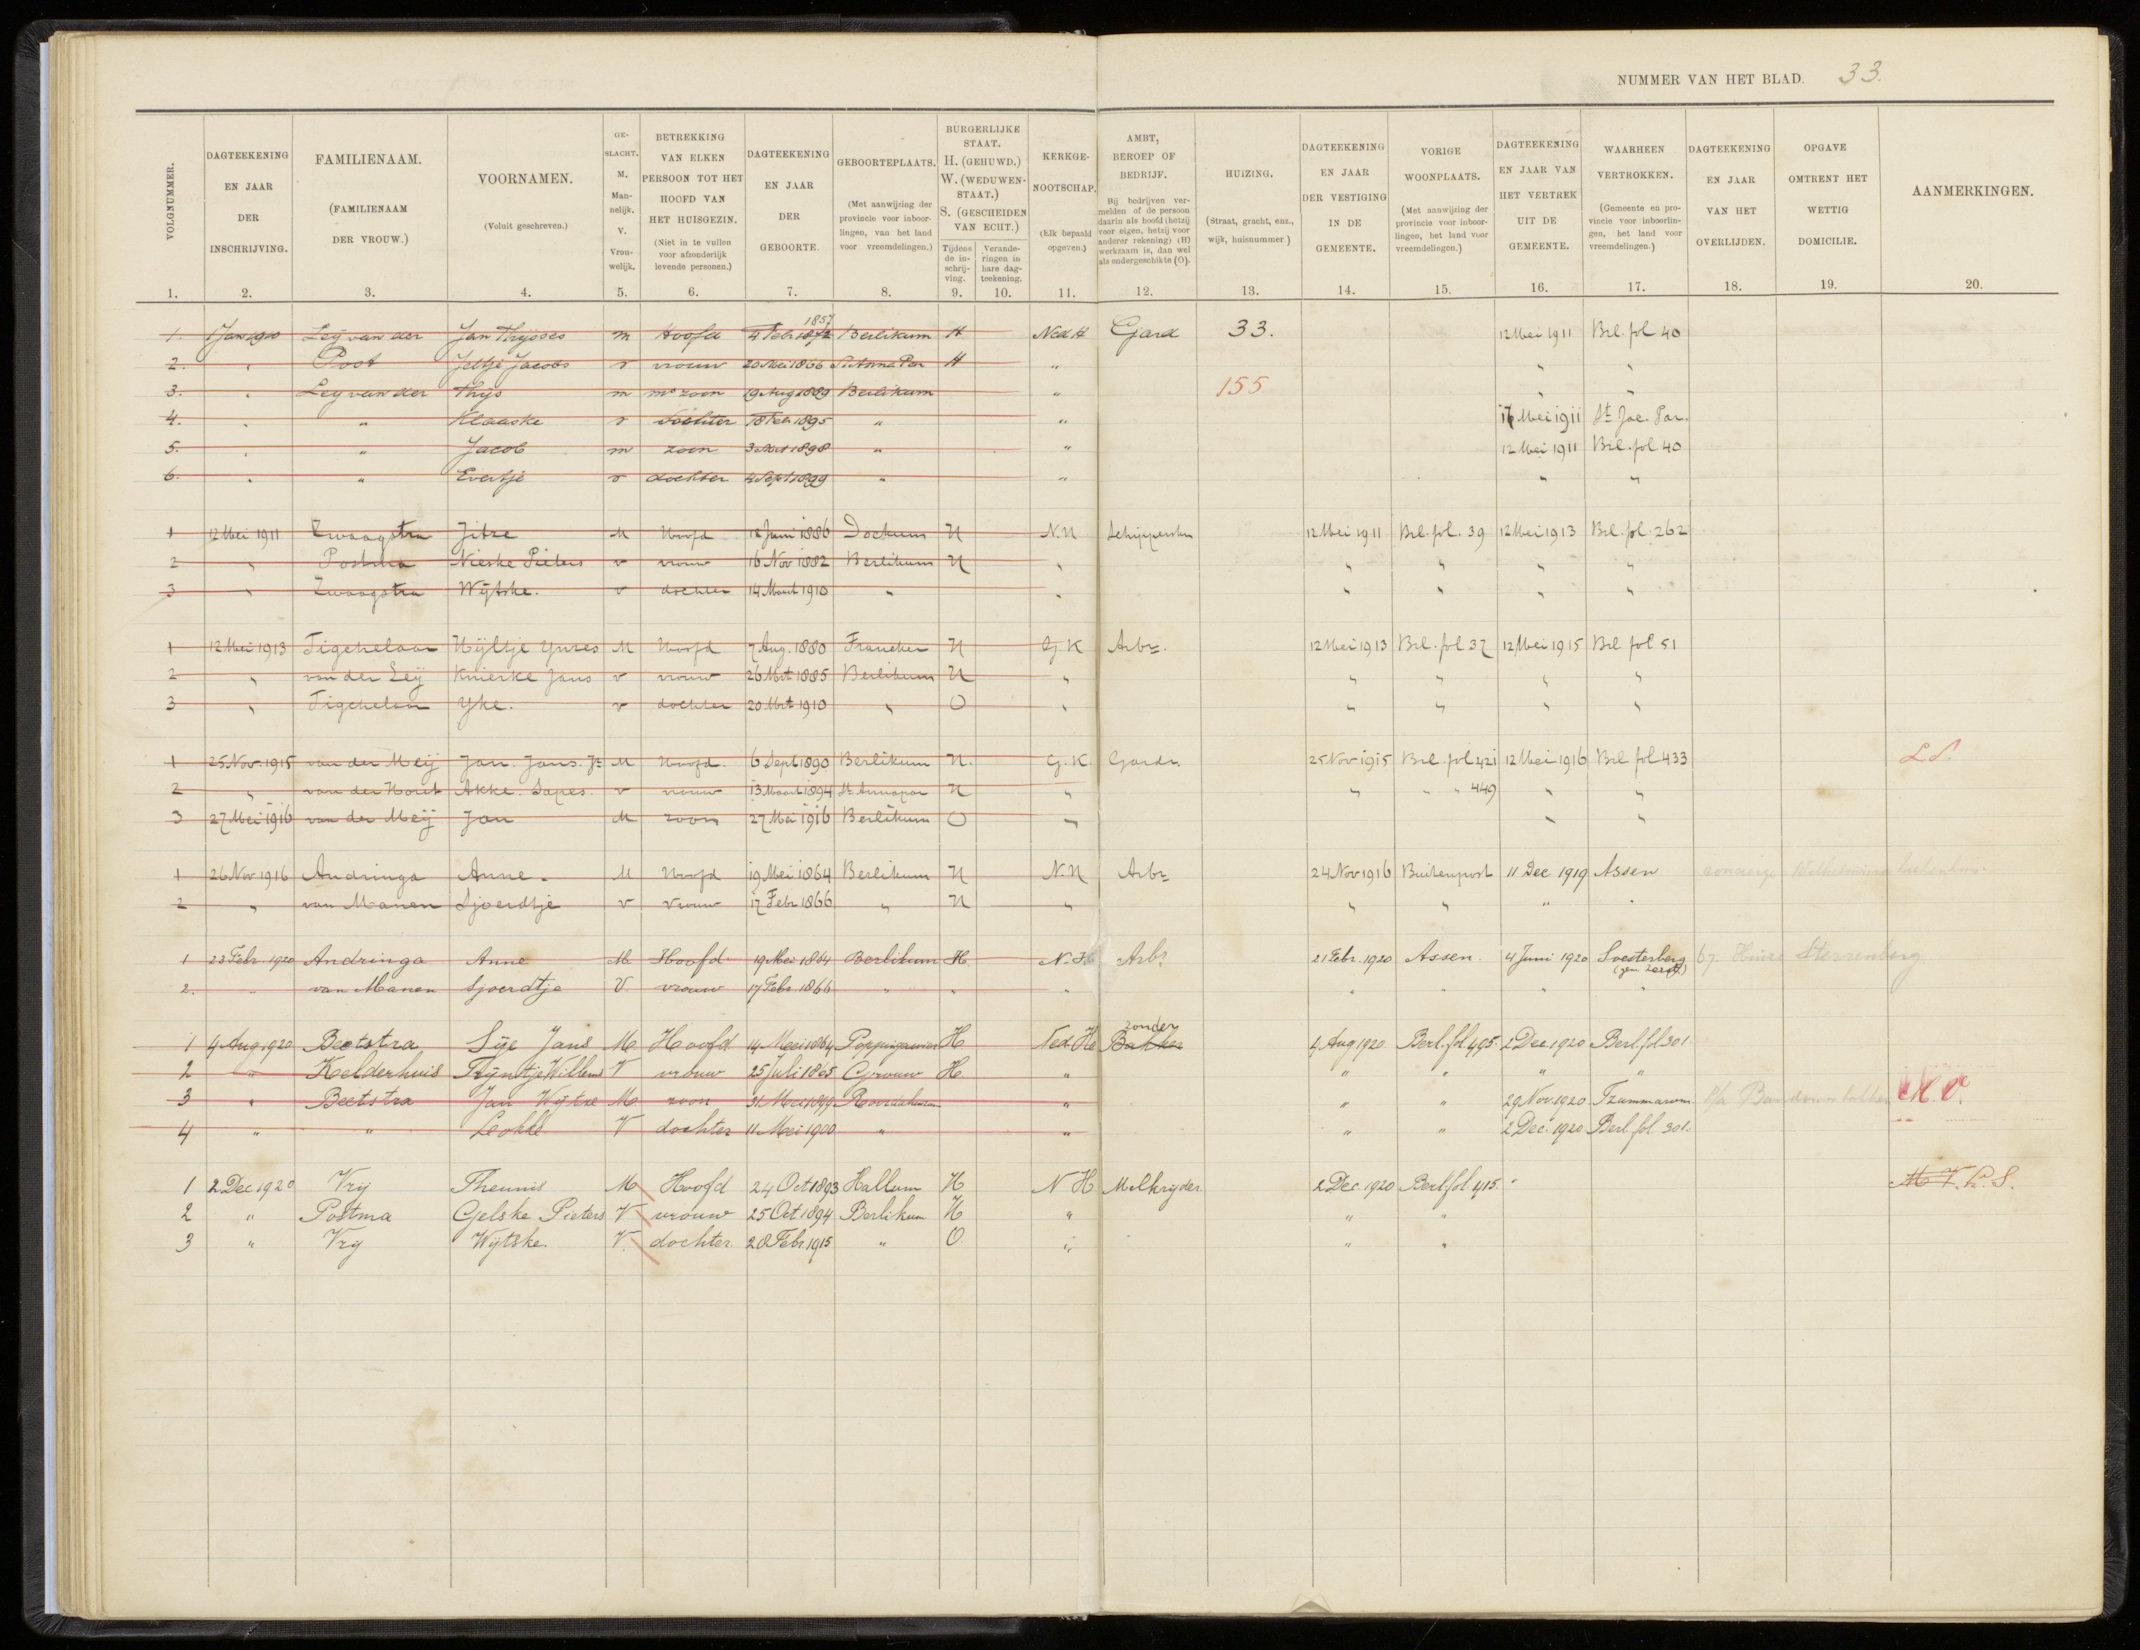 NUMMER VAN HET BLAD. 33.
VOLGNUMMER. 1.
DAGTEEKENING EN JAAR DER INSCHRIJVING. 2.
FAMILIENAAM. (FAMILIENAAM DER VROUW.) 3.
VOORNAMEN. (Voluit geschreven.) 4.
GE-SLACHT. M. Man-nelijk. V. Vrou-welijk. 5.
BETREKKING VAN ELKEN PERSOON TOT HET HOOFD VAN HET HUISGEZIN. (Niet in te vullen voor afzonderlijk levende personen.) 6.
DAGTEEKENING EN JAAR DER GEBOORTE. 7.
GEBOORTEPLAATS. (Met aanwijzing der provincie voor inboor-lingen, van het land voor vreemdelingen.) 8.
BURGERLIJKE STAAT. H. (GEHUWD.) W. (WEDUWEN-STAAT.) S. (GESCHEIDEN VAN ECHT.)
Tijdens de in-schrij-ving. 9.
Verande-ringen in hare dag-teekening. 10.
KERKGE-NOOTSCHAP. (Elk bepaald opgeven.) 11.
AMBT, BEROEP OF BEDRIJF. Bij bedrijven ver-melden of de persoon daarin als hoofd (hetzij voor eigen, hetzij voor anderer rekening) (H) werkzaam is, dan wel als ondergeschikte (O). 12.
HUIZING. (Straat, gracht, enz., wijk, huisnummer) 13.
DAGTEEKENING EN JAAR DER VESTIGING IN DE GEMEENTE. 14.
VORIGE WOONPLAATS. (Met aanwijzing der provincie voor inboor-lingen, het land voor vreemdelingen.) 15.
DAGTEEKENING EN JAAR VAN HET VERTREK UIT DE GEMEENTE. 16.
WAARHEEN VERTROKKEN. (Gemeente en pro-vincie voor inboorlin-gen, het land voor vreemdelingen.) 17.
DAGTEEKENING EN JAAR VAN HET OVERLIJDEN. 18.
OPGAVE OMTRENT HET WETTIG DOMICILIE. 19.
AANMERKINGEN. 20.
1857
1. 1 Jan 1910 Leij van der Jan Thijsses m Hoofd 4 Febr 1872 Berlikum H Ned H Gard 33. 12 Mei 1911 Brl. fol 40
2. " Post Jeltje Jacobs v vrouw 20 Mei 1866 St Anna Par H " " "
3. " Leij van der Thijs m zoon 19 Aug 1889 Berlikum " 155 " "
4. " " Klaaske v dochter 18 Feb 1895 " " 17 Mei 1911 St Jac. Par.
5. " " Jacob m zoon 1898 " " 12 Mei 1911 Brl. fol 40
6. " " Evertje v dochter 4 Sept 1899 " " " "
1 12 Mei 1911 Zwaagstra Jitze M Hoofd 12 Juni 1886 Dockum H N.H 12 Mei 1911 Brl. fol. 39 12 Mei 1913 Brl. fol. 262
2 " Postma Nieske Pieters v vrouw 16 Nov 1882 Berlikum H " " " " "
3 " Zwaagstra Wijtske. v dochter 14 Maart 1910 " " " " " "
1 12 Mei 1913 Tigchelaar Wijltje Ynzes M Hoofd 7 Aug. 1880 Franeker H G. K Arbr. 12 Mei 1913 Brl. fol 37 12 Mei 1915 Brl fol 51
2 " van der Leij Knierke Jans v vrouw 26 Mrt 1885 Berlikum H " " " " "
3 " Tigchelaar Yke. v dochter 20 Mrt 1910 " O " " " " "
1 25 Nov. 1915 van der Meij Jan. Jans. Jr M Hoofd. 6 Sept 1890 Berlikum H. G. K. Gardr. 25 Nov 1915 Brl. fol 421 12 Mei 1916 Brl fol 433
2 " van der Horst Akke. Sapes. v vrouw 13 Maart 1894 St Annapar H " " " " 449 " "
3 27 Mei 1916 van der Meij Jan M zoon 27 Mei 1916 Berlikum O " " "
1 26 Nov 1916 Andringa Anne. M Hoofd 19 Mei 1864 Berlikum H N.H Arbr 24 Nov 1916 Buitenpost 11 Dec 1919 Assen concierge Wilhelmina
2 " van Manen Sjoerdtje v vrouw 17 Febr 1866 " H " " " " "
1 23 Febr 1920 Andringa Anne M Hoofd 19 Mei 1864 Berlikum H N. H Arbr 21 Febr. 1920 Assen. 4 Juni 1920 Soesterberg (gem. Zeist) Huize Sterrenberg
2. " van Manen Sjoerdtje V. vrouw 17 Febr 1866 " " " " " " "
zonder
1 4 Aug 1920 Beetstra Sije Jans M. Hoofd 14 Mei 1864 Poppingawier H Ned. He Bakker 4 Aug 1920 Berl. fol 495. 2 Dec. 1920 Berl fol 301
2 " Kelderhuis Trijntje Willems V vrouw 25 Juli 1865 Grouw H. " " " " "
3 " Beetstra Jan Wijtze M zoon 31 Mei 1899 " " " 29 Nov 1920 Tzummarum M. V.
4 " " V dochter 11 Mei 1900 " " " " 2 Dec. 1920 Berl. fol 301.
1 2 Dec 1920 Vrij Theunis M Hoofd 24 Oct 1893 Hallum H N H Melkrijder 2 Dec. 1920 Berl fol 415 M V. P. S.
2 " Postma Gjelske Pieters V vrouw 25 Oct 1894 Berlikum H " " "
3 " Vrij Wijtske. V. dochter. 28 Febr 1915 " O. " " "